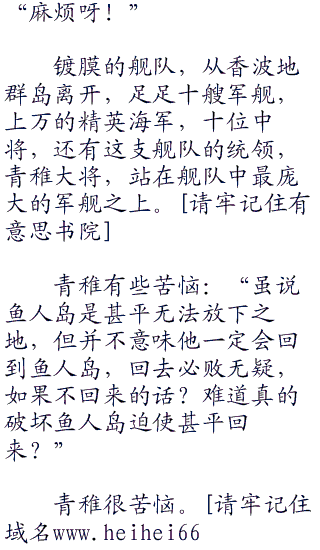 “麻烦呀！”
镀膜的舰队，从香波地
群岛离开，足足十艘军舰，
上万的精英海军，十位中
将，还有这支舰队的统领，
青稚大将，站在舰队中最庞
大的军舰之上。[请牢记住有
意思书院]
青稚有些苦恼：“虽说
鱼人岛是甚平无法放下之
地，但并不意味他一定会回
到鱼人岛，回去必败无疑，
如果不回来的话？难道真的
破坏鱼人岛迫使甚平回
来？”
青稚很苦恼。[请牢记住
域名www.heihei66